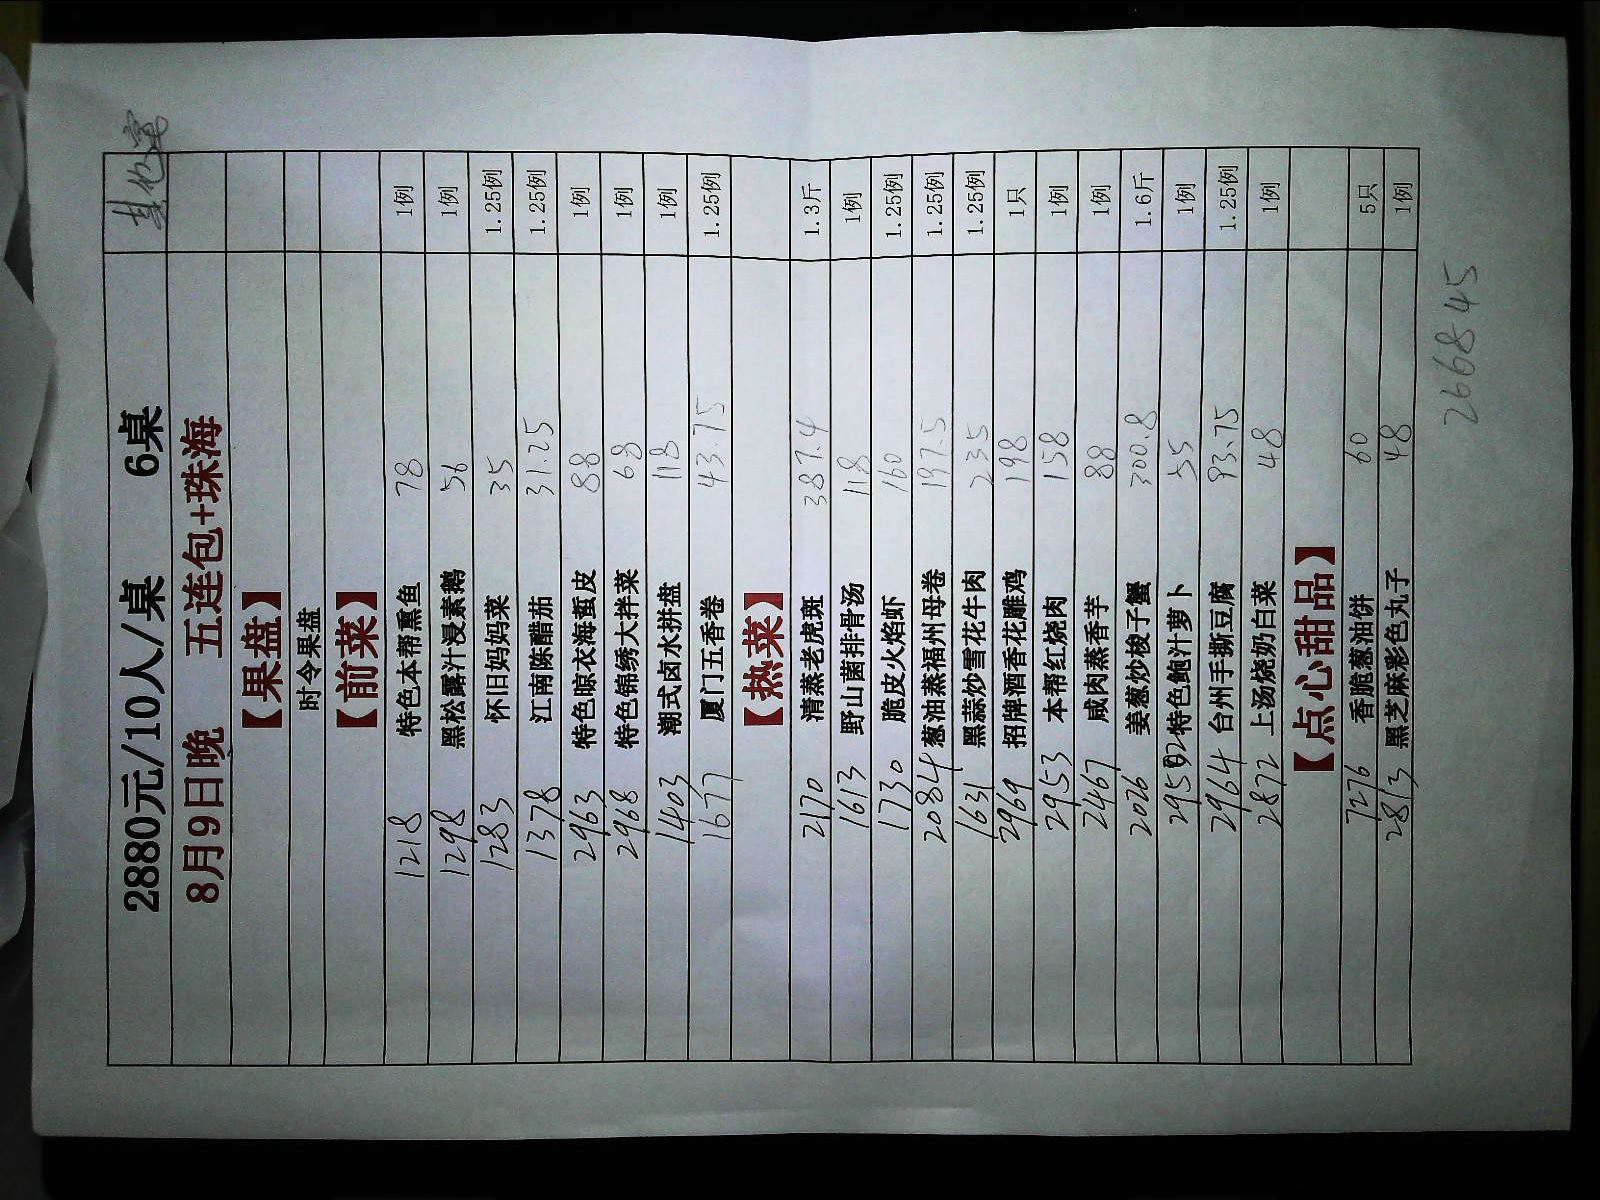 其他宴
2880元/10人/桌 6桌
8月9日晚 五连包+珠海
【果盘】
时令果盘
【前菜】
1218 特色本帮熏鱼 78 1例
1298 黑松露汁浸素鹅 56 1例
1283 怀旧妈妈菜 35 1.25例
1378 江南陈醋茄 31.25 1.25例
2963 特色晾衣海蜇皮 88 1例
2968 特色锦绣大拌菜 68 1例
1403 潮式卤水拼盘 118 1例
1677 厦门五香卷 43.75 1.25例
【热菜】
2170 清蒸老虎斑 387.4 1.3斤
1613 野山菌排骨汤 118 1例
1730 脆皮火焰虾 160 1.25例
2084 葱油蒸福州母卷 197.5 1.25例
1631 黑蒜炒雪花牛肉 235 1.25例
2969 招牌酒香花雕鸡 198 1只
2953 本帮红烧肉 158 1例
2467 咸肉蒸香芋 88 1例
2076 姜葱炒梭子蟹 300.8 1.6斤
2952 特色鲍汁萝卜 55 1例
2964 台州手撕豆腐 93.75 1.25例
2872 上汤烧奶白菜 48 1例
【点心甜品】
7276 香脆葱油饼 60 5只
2813 黑芝麻彩色丸子 48 1例
2668.45